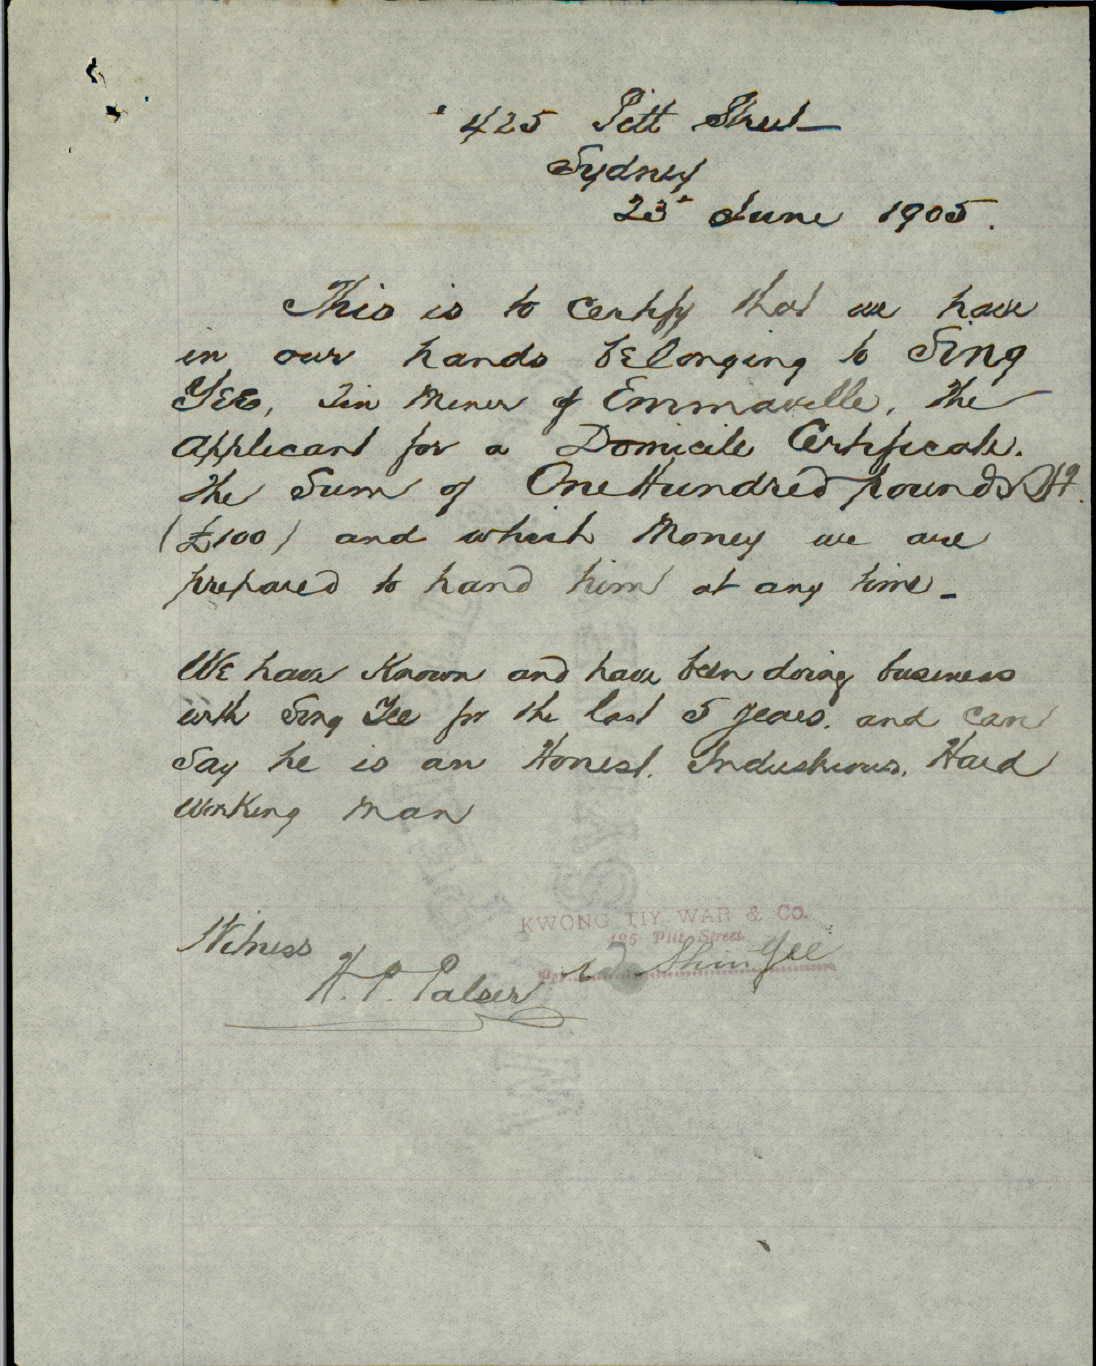 425 Pitt Street
Sydney
23d June 1905.
This is to certify that we have
in our hands belonging to Sing
Yee, Tin Miner of Emmaville, the
Applicant for a Domicile Certificate.
the Sum of One Hundred pounds
(£100) and which Money we are
prepared to hand him at any time -
We have Known and have been doing business
with Sing Yee for the last 5 years. and can
Say he is an Honest. Industrious. Hard
Working Man
Witness
KWONG TIY WAR & CO.
Pitt Street
Shin Yee
H. P. Palser